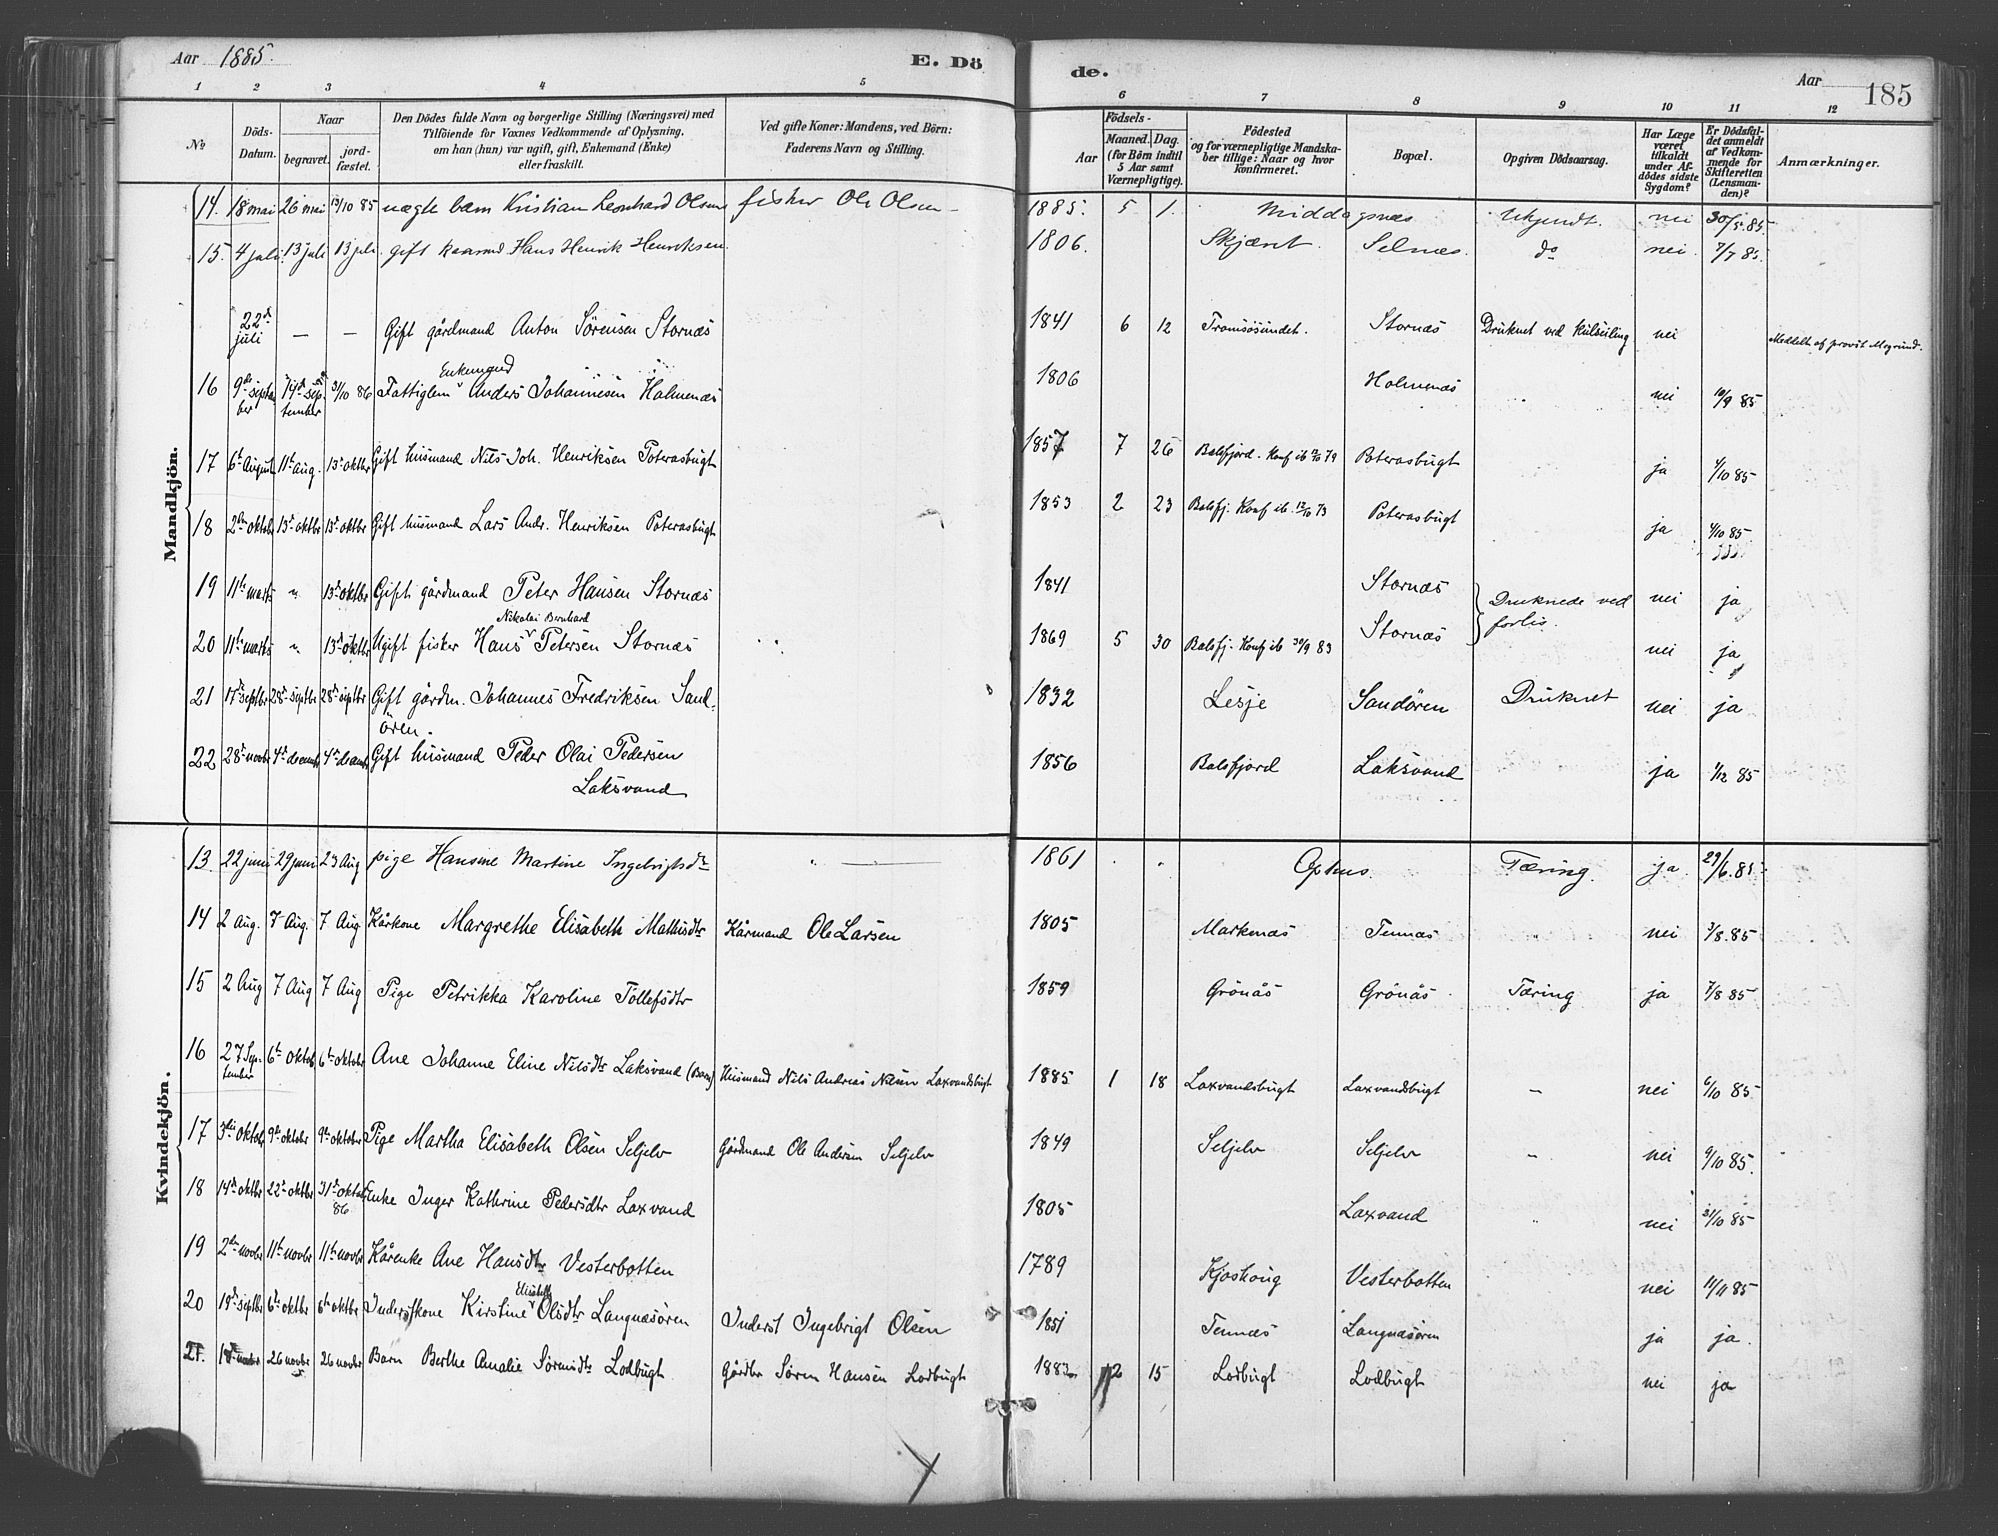 Aar 1885. E. Dö de. Aar 185
1 2 3 4 5 6 7 8 9 10 11 12
No
Döds-Datum.
Naar
begravet.
jord-fæstet.
Den Dödes fulde Navn og borgerlige Stilling (Næringsvei) med
Tilföiende for Voxnes Vedkommende af Oplysning,
om han (hun) var ugift, gift, Enkemand (Enke)
eller fraskilt.
Ved gifte Koner: Mandens, ved Börn:
Faderens Navn og Stilling.
Födsels-
Aar
Maaned. Dag.
(for Börn indtil
5 Aar samt
Værnepligtige).
Födested
og for værnepligtige Mandska-
ber tillige: Naar og hvor
konfirmeret.
Bopæl.
Opgiven Dödsaarsag.
Har Læge
været
tilkaldt
under Af-
dödes sidste
Sygdom?
Er Dödsfal-
det anmeldt
af Vedkom-
mende for
Skifteretten
(Lensman-
den)?
Anmærkninger.
Mandkjön.
14. 18 mai 26 mai /10 85 nægte barn Kristian Leonhard Olsen fisker Ole Olsen 1885. 5 1. Middagsnæs Ukjendt. nei 30/5.85
15. 4 juli 13 juli 13 juli gift kaarmd Hans Henrik Henriksen 1806. Skjæret. Selnæs. do nei. 7/7 85
22d juli — — Gift gårdmand Anton Sörensen Stornæs 1841 6 12 Tromsösundet. Stornæs Druknet ved kulseiling nei Meddelt af provst
Enkemand
16 9de septem ber 14d sep tember 31/10 86 Fattiglem v Anders Johannesen Holmenæs 1806 Holmenæs nei 10/9 85
17 6t August 11t Aug. 13d oktbr Gift husmand Nils Joh. Henriksen Poterasbugt 1857 7 26 Balsfjord. Konf ib /10 79 Poterasbugt ja 4/10 85
18 2den oktob 13d oktbr 13d oktbr Gift husmand Lars Andr. Henriksen Poterasbugt 1853 2 23 Balsfj. Konf ib. 12/10 73 Poterasbugt ja 4/10 85
19 11te marts " 13d oktbr Gift gårdmand Peter Hansen Stornæs 1841 Stornæs Druknede ved forlis. nei ja
Nikolai Bernhard
20 11te marts " 13d oktbr Ugift fisker Hans v Petersen Stornæs 1869 5 30 Balsfj. Konf ib 30/9 83 Stornæs nei ja
21 17d septbr 28d septbr 28d septbr Gift gårdm. Johannes Fredriksen Sand-
ören. 1832 Lesje Sandören Druknet nei ja
22 28d novbr 4d decembr 4d decembr Gift husmand Peder Olai Pedersen
Laksvand 1856 Balsfjord Laksvand ja 1/12 85
Kvindekjön.
13. 22 juni 29 juni 23 Aug pige Hansine Martine Ingebrigtsdtr " — 1861 Ophus. Tæring. ja. 29/6.85
14 2 Aug. 7 Aug. 7 Aug Kårkone Margrethe Elisabeth Mathisdtr Kårmand Ole Larsen 1805 Markenæs Tennæs " nei 3/8.85
15 2 Aug 7 Aug 7 Aug Pige Petrikka Karoline Tollefsdtr 1859 Grönås Grönås Tæring ja 7/8 85
16 27 Sep-tember 6te Oktob 6te oktober Ane Johanne Eline Nilsdtr Laksvand (Barn) Husmand Nils Andreas Nilsen Laxvandsbugt 1885 1 18 Laxvandsbugt Laxvandsbugt — nei 6/10 85
17 3die oktob 9de oktober 9de oktober Pige Martha Elisabeth Olsen Seljelv Gårdmand Ole Andersen Seljelv 1849 Seljelv Seljelv — nei 9/10 85.
18 14d oktbr 22d oktbr 31d oktob 86 Enke Inger Kathrine Pedersdtr Laxvand 1805 Laxvand " nei 21/10 85
19 2den novbr 11te novbr 11te novbr Kårenke Ane Hansdtr Vesterbotten 1789 Kjoshoug Vesterbotten nei 11/11 85
Elisabeth
20 19d septbr 6te oktbr 6te oktbr Inderstkone Kirstine v Olsdtr Langnæsören Inderst Ingebrigt Olsen 1851 Tennæs Langnæsören ja ja.
21. 18d novbr 26 novbr 26 novbr Barn Berthe Amalie Sörensdtr Lodbugt Gårdbr Sören Hansen Lodbugt 1882 12 15 Lodbugt Lodbugt nei ja